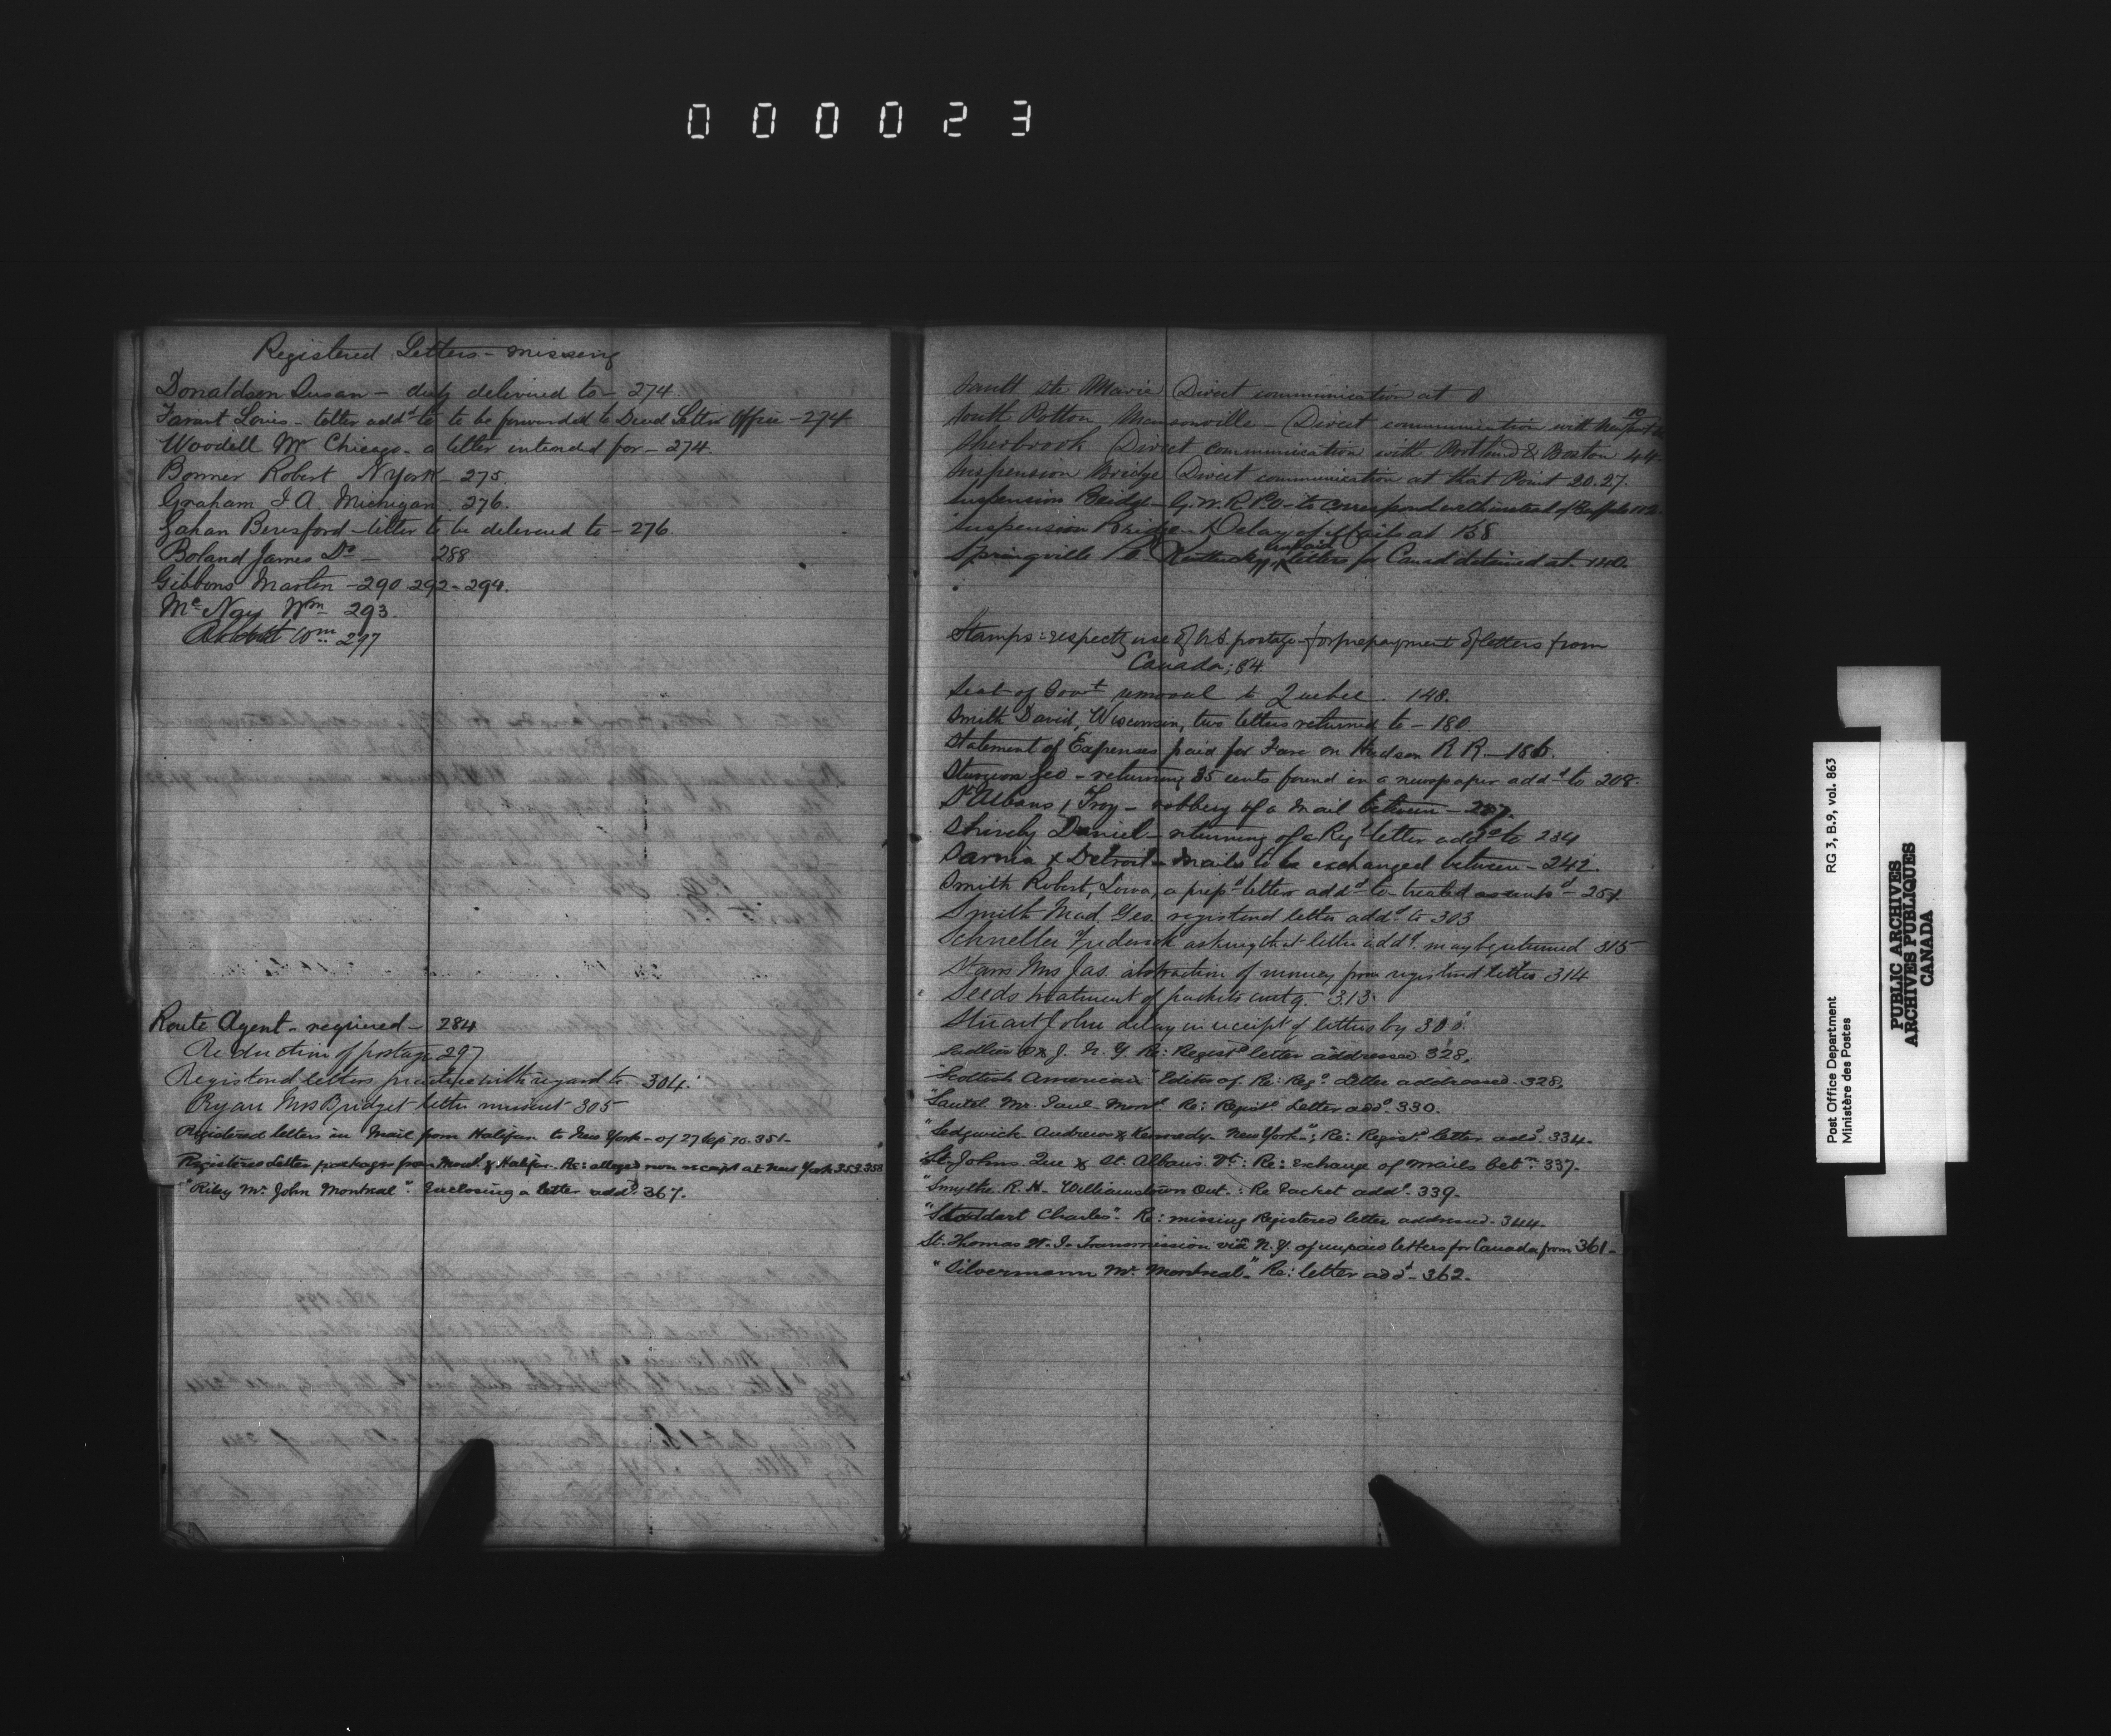 000023
Registered Letters - missing
Donaldson Susan - duly delivered to - 274
Louis - letter addd to to be forwarded to Dead Letter Office - 274
Woodell Mr Chicago - a letter intended for - 274.
Bonner Robert N York - 275.
Graham I A. Michigan. 276.
Gahan Beresford - letter to be delivered to - 276.
Boland James Do - 288
Gibbons Martin - 290 292 - 294.
Mc Nay Wm 293.
Abbott Wm 297
Route Agent - required - 284
Reduction of postage 297
Registered letters practice with regard to - 304.
Ryan Mrs Bridget letter missent 305
Registered letters in Mail from Halifax to New York - of 27 Sep 70. 351 -
Registered Letter packages from Montl & Halifax. Re: alleged non receipt at New York. 353.358
"Riley Mr John Montreal". Enclosing a letter addd. 367.
Sault Ste Marie Direct communication at 8
South Potton Mansonville - Direct communication with Newport 10
Sherbrook Direct communication with Portland & Boston 44
Suspension Bridge Direct communication at that Point 20.27.
Suspension Bridge - G. W. R. P.O - to correspond with instead of Buffalo
Suspension Bridge - Delay of Mails at 138
Springville Kentucky, unpaid letters for Canad detained at 140.
Stamps: respectg use of U.S. postage - for prepayment of letters from
Canada; 84.
Seat of Govt removal to Quebec. 148.
Smith David, Wisconsin, two letters returned to - 180
Statement of Expenses paid for Fare on Hudson R R. - 186.
Sturgeon Geo - returning 35 cents found in a newspaper addd to 208.
St Albans & Troy - robbery of a Mail between - 227.
Shively Daniel - returning of a Reg letter addd to 234
Sarnia & Detroit - Mails to be exchanged between - 242.
Smith Robert, Iowa, a prepd letter addd to treated as unpd - 251.
Smith Mad. Geo. registered letter addd to 303
Schneller Frederick asking that letter addd. may be returned 315
Mrs Jas. abstraction of money from registered letter 314
Seeds treatment of packets contg. 313
Stuart John delay in receipt of letters by 300.
Sadlier D & J. N. Y. Re: Registd letter addressed. 328.
"Scottish American" Editor of. Re: Regd. Letter addressed. 328.
"Sautel Mr. Paul - Montl Re: Registd Letter addd. 330.
"Sedgwick Andrews & Kennedy - New York"; Re: Registd letter addd. 334.
St. Johns Que & St. Albans Vt: Re: exchange of mails betn. 337.
"Smythe R. H. Williamstown Ont.: Re Packet addd. 339.
"Stoddart Charles". Re: missing Registered letter addressed. 344.
St. Thomas W. I. Transmission via N. Y. of unpaid letters for Canada from 361 -
"Silvermann Mr. Montreal." Re: letter addd - 362.
Post Office Department RG 3, B.9, vol. 863
Ministère des Postes
PUBLIC ARCHIVES
ARCHIVES PUBLIQUES
CANADA